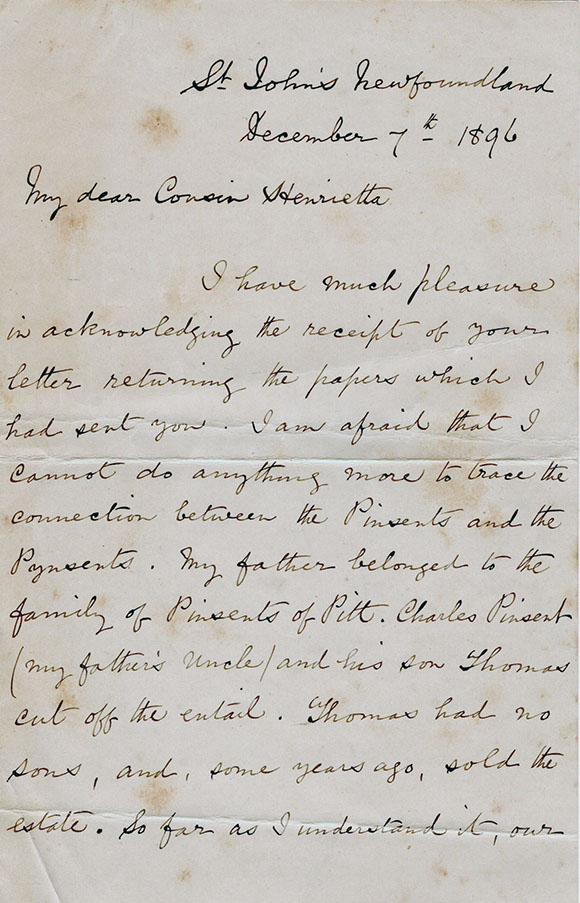 St John's Newfoundland
December 7th 1896
My dear Cousin Henrietta
I have much pleasure
in acknowledging the receipt of your
letter returning the papers which I
had sent you. I am afraid that I
cannot do anything more to trace the
connection between the Pinsents and the
Pynsents. My father belonged to the
family of Pinsents of Pitt. Charles Pinsent
(my father's Uncle) and his son Thomas
cut off the entail. Thomas had no
sons, and, some years ago, sold the
estate. So far as I understand it, our